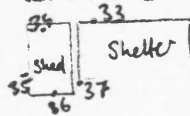 34 33
shed Shelter
35 36 37